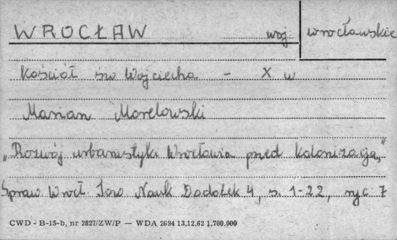 WROCŁAW woj. wrocławskie
Kościół św Wojciecha - X w
Marian Morelowski
„Rozwój urbanistyki Wrocławia przed kolonizacją,"
Spraw Wrocł. Tow Nauk Dodatek 4, s. 1-22, ryc 7
CWD - B-15-b, nr 2827/ZW/P — WDA 2694 13.12.62 1.700.000